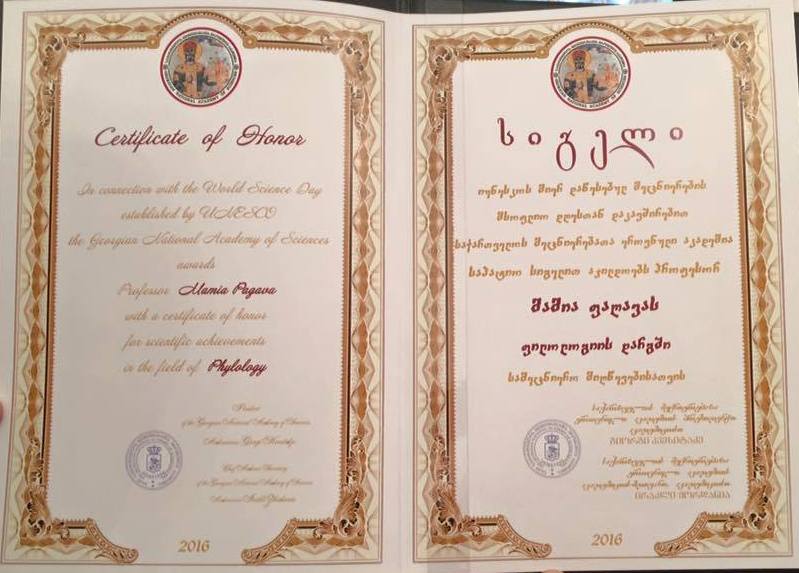 Certificate of Honor
In connection with the World Science Day
established by UNESCO
the Georgian National Academy of Sciences
awards
Professor Mamia Pagava
with a certificate of honor
for scientific achievements
in the field of Phylology
President
of the Georgian National Academy of Sciences
Academician
of the Georgian National Academy of Sciences
Academician
2016
სიგელი
იუნესკოს მიერ დაწესებულ მეცნიერების
მსოფლიო დღესთან დაკავშირებით
საქართველოს მეცნიერებათა ეროვნული აკადემია
საპატიო სიგელით აჯილდოებს პროფესორ
მამია ფაღავას
ფილოლოგიის დარგში
სამეცნიერო მიღწევებისათვის
საქართველოს მეცნიერებათა
ეროვნული აკადემიის პრეზიდენტი
აკადემიკოსი
გიორგი კვესიტაძე
საქართველოს მეცნიერებათა
ეროვნული აკადემიის
აკადემიკოს-მდივანი, აკადემიკოსი
ირაკლი ჟორდანია
2016